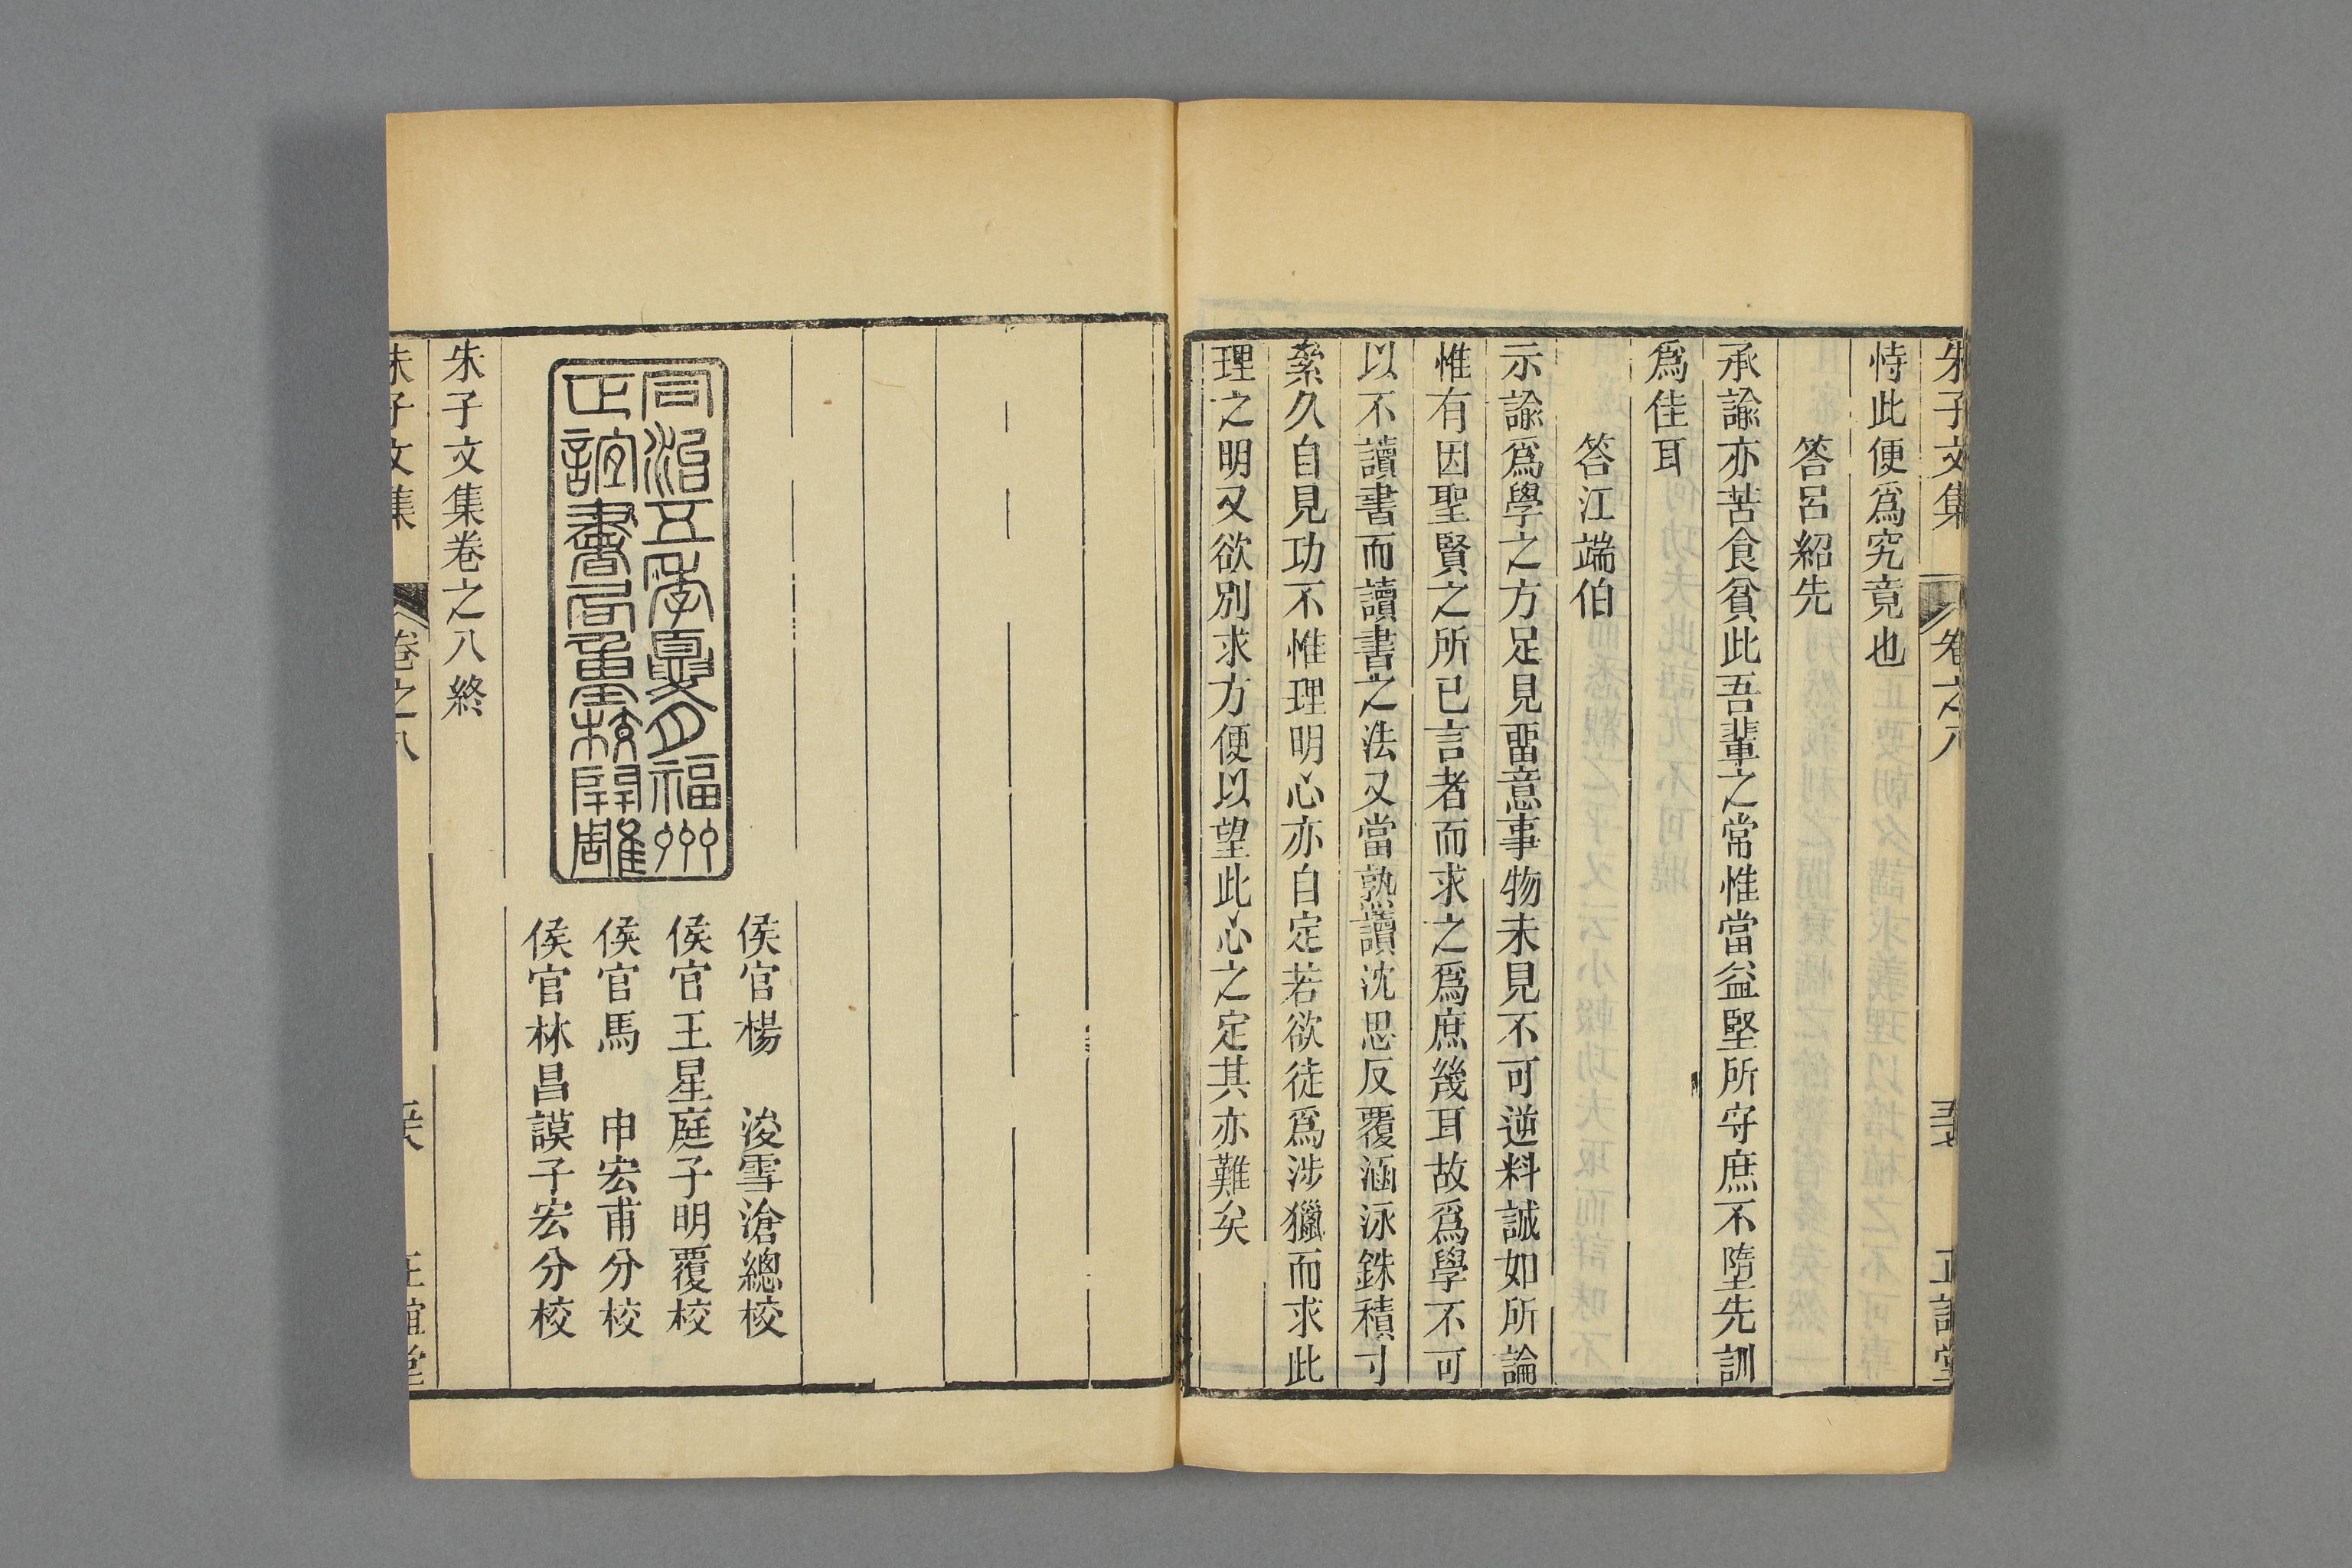 朱子文集 卷之八 正誼堂
恃此便爲究竟也
答呂紹先
承諭亦苦食貧此吾輩之常惟當益堅所守庶不墮先訓
爲佳耳
答江端伯
示諭爲學之方足見畱意事物未見不可逆料誠如所論
惟有因聖賢之所已言者而求之爲庶幾耳故爲學不可
以不讀書而讀書之法又當熟讀沈思反覆涵泳銖積寸
絫久自見功不惟理明心亦自定若欲徒爲涉獵而求此
理之明又欲別求方便以望此心之定其亦難矣
同治五年夏月福州
正誼書局重校開雕
侯官楊 浚雪滄總校
侯官王星庭子明覆校
侯官馬 申宏甫分校
侯官林昌謨子宏分校
朱子文集卷之八終
朱子文集 卷之八 正誼堂